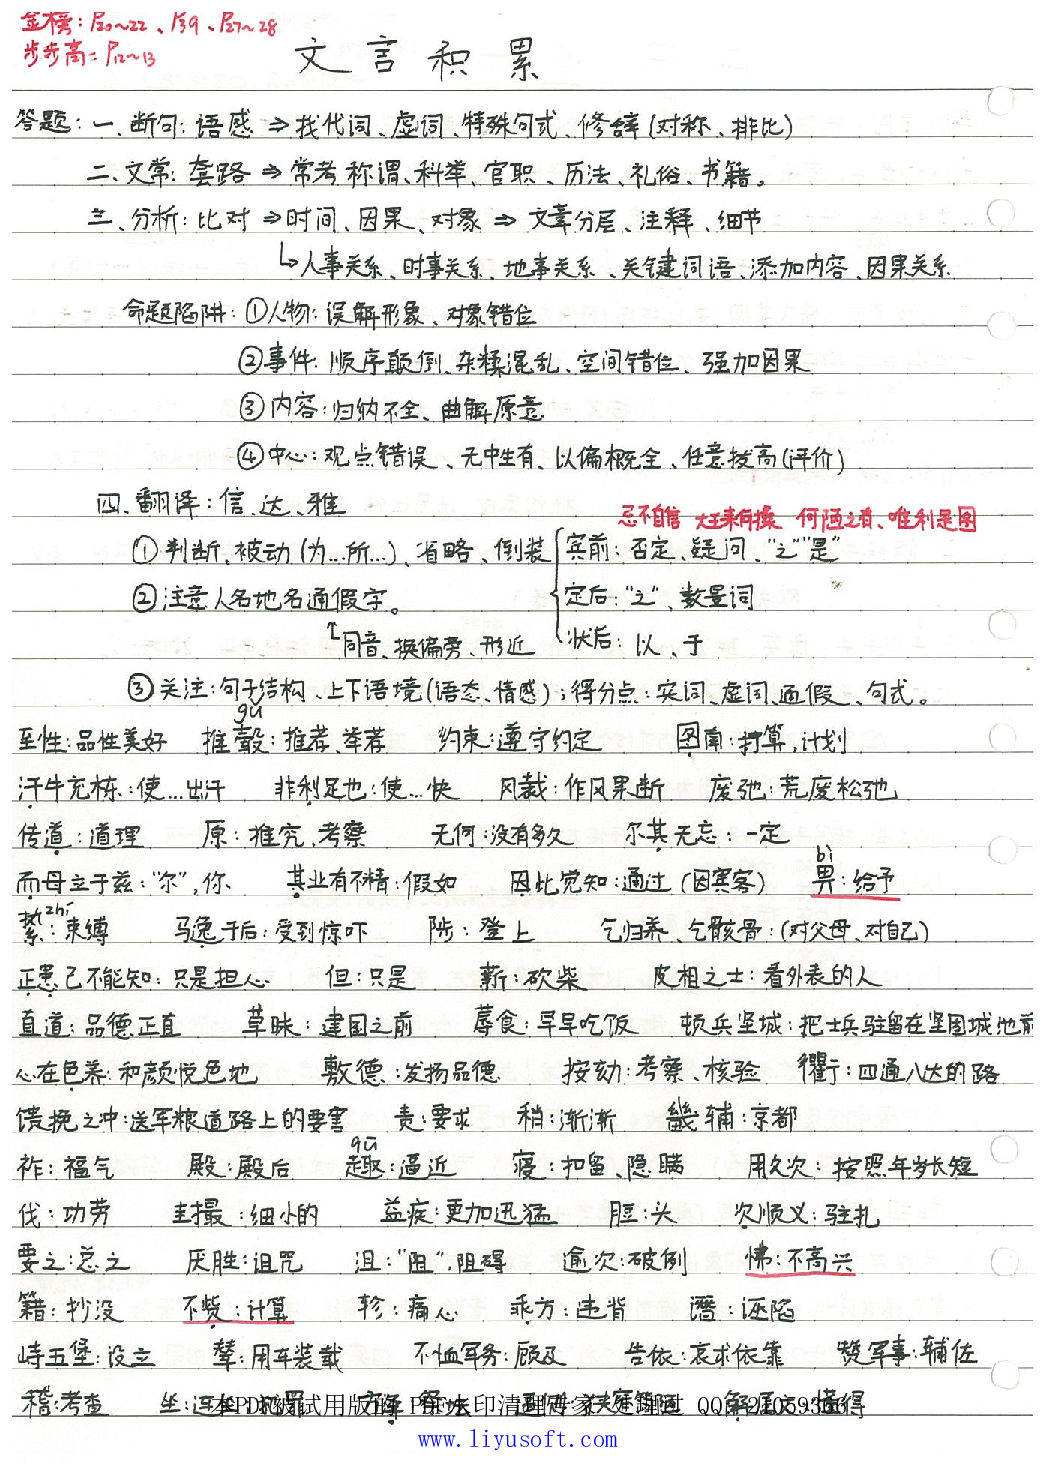 金榜：P20~22、P39、P27~28
步步高：P12~13
文言积累
答题：一、断句：语感⇒找代词、虚词、特殊句式、修辞(对称、排比)
二、文常：套路⇒常考称谓、科举、官职、历法、礼俗、书籍。
三、分析：比对⇒时间、因果、对象⇒文章分层、注释、细节
↳人事关系、时事关系、地事关系、关键词语、添加内容、因果关系
命题陷阱：①人物：误解形象、对象错位
②事件：顺序颠倒、杂糅混乱、空间错位、强加因果
③内容：归纳不全、曲解原意
④中心：观点错误、无中生有、以偏概全、任意拔高(评价)
四、翻译：信、达、雅
忌不自信 大王来何操 何陋之有、唯利是图
①判断、被动(为…所…)、省略、倒装 宾前：否定、疑问、"之""是"
②注意人名地名通假字。 定后："之"、数量词
↑同音、换偏旁、形近 状后：以、于
③关注：句子结构、上下语境(语态、情感)；得分点：实词、虚词、通假、句式。
gǔ
至性：品性美好 推毂：推荐、举荐 约束：遵守约定 图南：打算，计划
汗牛充栋：使…出汗 非利足也：使…快 风裁：作风果断 废弛：荒废松弛
传道：道理 原：推究，考察 无何：没有多久 尔其无忘：一定
bì
而母立于兹："尔"，你 其业有不精：假如 因比觉知：通过(因宾客) 畀：给予
zhí
絷：束缚 马逸于后：受到惊吓 陟：登上 乞归养、乞骸骨：(对父母、对自己)
正患己不能知：只是担心 但：只是 薪：砍柴 皮相之士：看外表的人
直道：品德正直 草昧：建国之前 蓐食：早早吃饭 顿兵坚城：把士兵驻留在坚固城池前
心在色养：和颜悦色地 敷德：发扬品德 按劾：考察、核验 衢行：四通八达的路
馈挽之中：送军粮道路上的要害 责：要求 稍：渐渐 畿辅：京都
qū
祚：福气 殿：殿后 趣：逼近 寝：扣留、隐瞒 用久次：按照年岁长短
伐：功劳 撮：细小的 益疾：更加迅猛 脰：头 次顺义：驻扎
要之：总之 厌胜：诅咒 沮："阻"，阻碍 逾次：破例 怫：不高兴
籍：抄没 不赀：计算 轸：痛心 乖方：违背 谮：诬陷
峙五堡：设立 辇：用车装载 不恤军务：顾及 告依：哀求依靠 赞军事：辅佐
稽：考查 坐：
www.liyusoft.com